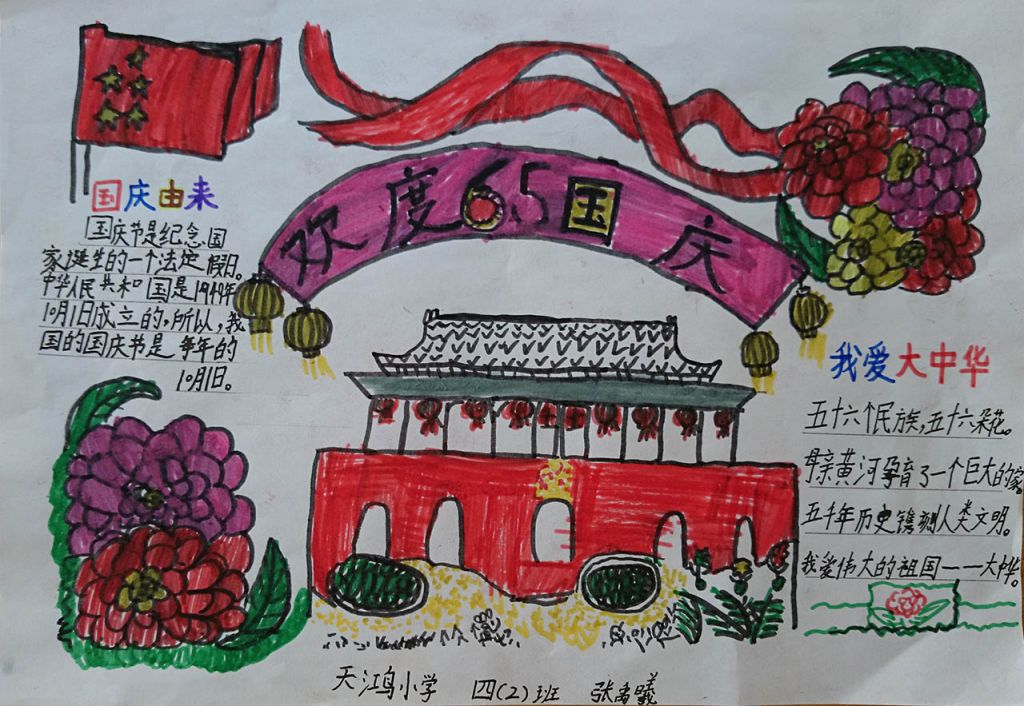 欢度65国庆
国庆由来
国庆节是纪念国
家诞生的一个法定假日。
中华人民共和国是1949年
10月1日成立的,所以,我
国的国庆节是每年的
10月1日。
我爱大中华
五十六个民族,五十六朵花。
母亲黄河孕育了一个巨大的家
五千年历史镌刻人类文明。
我爱伟大的祖国——大中华。
天鸿小学 四(2)班 张禹曦